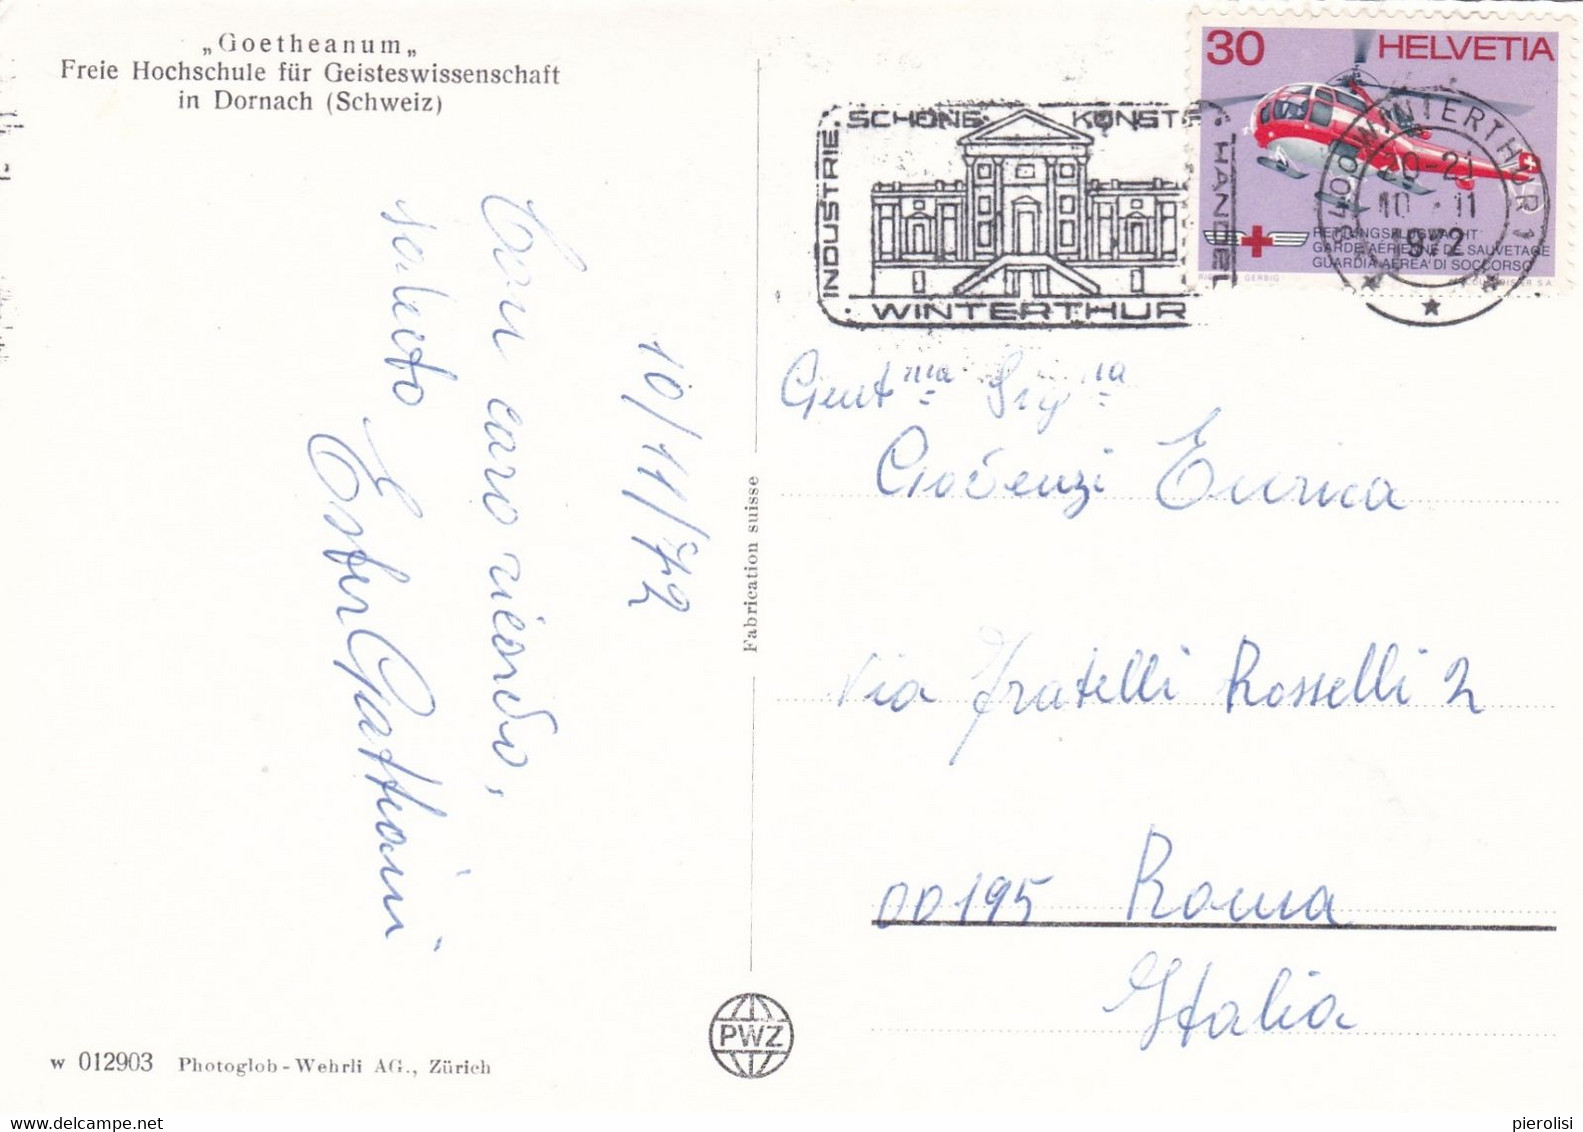 „Goetheanum„
Freie Hochschule für Geisteswissenschaft
in Dornach (Schweiz)
Con caro ricordo,
saluto
Ester Gattoni
10/11/72
Fabrication suisse
INDUSTRIE
SCHÖNE KÜNSTE
HANDEL
WINTERTHUR
30 HELVETIA
RETTUNGSFLUGWACHT
GARDE AÉRIENNE DE SAUVETAGE
GUARDIA AEREA DI SOCCORSO
GERBIG
8400 WINTERTHUR 1
20-21
10.11
972
Gent ma Sig na
Enrica
Via Fratelli Rosselli 2
00195 Roma
Italia
w 012903 Photoglob-Wehrli AG., Zürich
PWZ
pierolisi